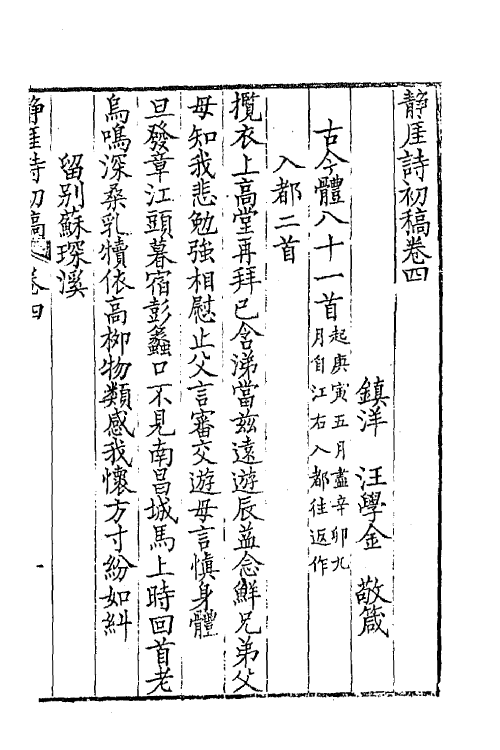 靜厓詩初稿卷四
鎮洋　汪學金　敬箴
古今體八十一首起庚寅五月盡辛卯九月自江右入都往返作
入都二首
攬衣上高堂再拜已含涕當茲遠遊辰益念鮮兄弟父
母知我悲勉強相慰止父言審交遊母言慎身體
旦發章江頭暮宿彭蠡口不見南昌城馬上時回首老
烏鳴深桑乳犢依高柳物類感我懷方寸紛如糾
留别蘇琛溪
靜厓詩初稿 卷四